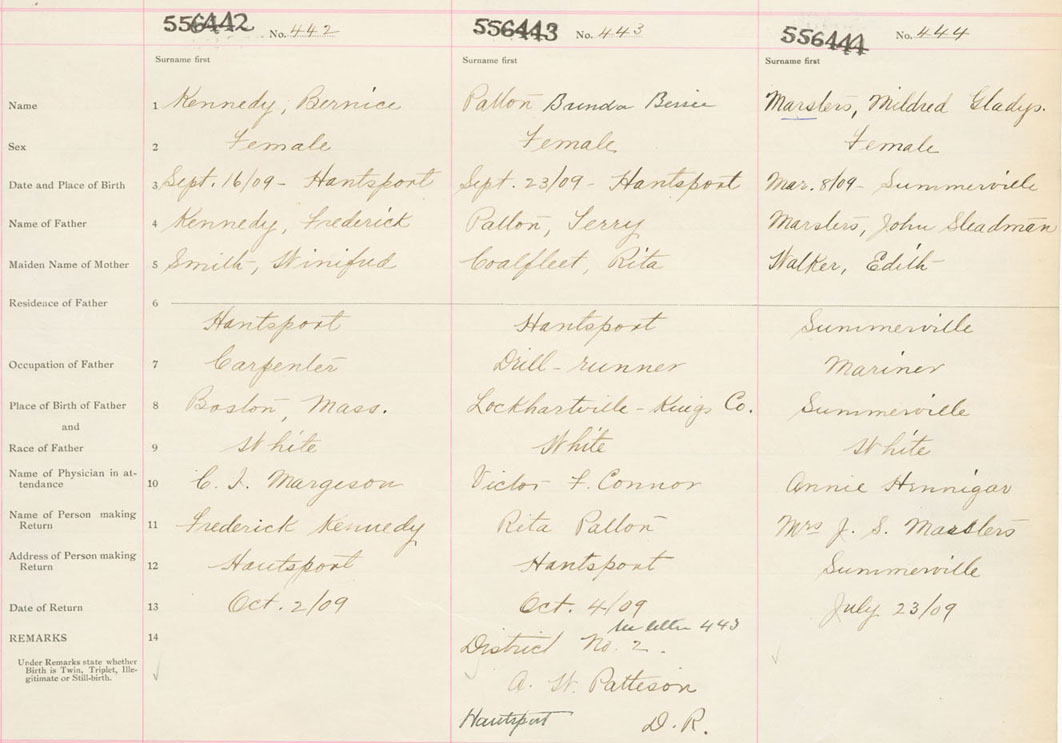 556442 No. 442 556443 No. 443 556444 No. 444
Surname first Surname first Surname first
Name 1 Kennedy, Bernice Patton Marsters, Mildred Gladys.
Sex 2 Female Female Female
Date and Place of Birth 3 Sept. 16/09 - Hantsport Sept. 23/09 - Hantsport Mar. 8/09 - Summerville
Name of Father 4 Kennedy, Frederick Patton, Terry Marsters, John Steadman
Maiden Name of Mother 5 Smith, Winifred Coalfleet, Rita Walker, Edith
Residence of Father 6
Hantsport Hantsport Summerville
Occupation of Father 7 Carpenter Drill-runner Mariner
Place of Birth of Father 8 Boston, Mass. Lockhartville - Kings Co. Summerville
and
Race of Father 9 White White White
Name of Physician in at-
tendance 10 C. I. Margeson Victor F. Connor Annie Hennigar
Name of Person making
Return 11 Frederick Kennedy Rita Patton Mrs J. S. Marsters
Address of Person making
Return 12 Hantsport Hantsport Summerville
Date of Return 13 Oct. 2/09 Oct. 4/09 July 23/09
see letter 443
REMARKS 14 District No. 2.
Under Remarks state whether
Birth is Twin, Triplet, Ille-
gitimate or Still-birth.
A. W. Patteson
Hantsport D. R.